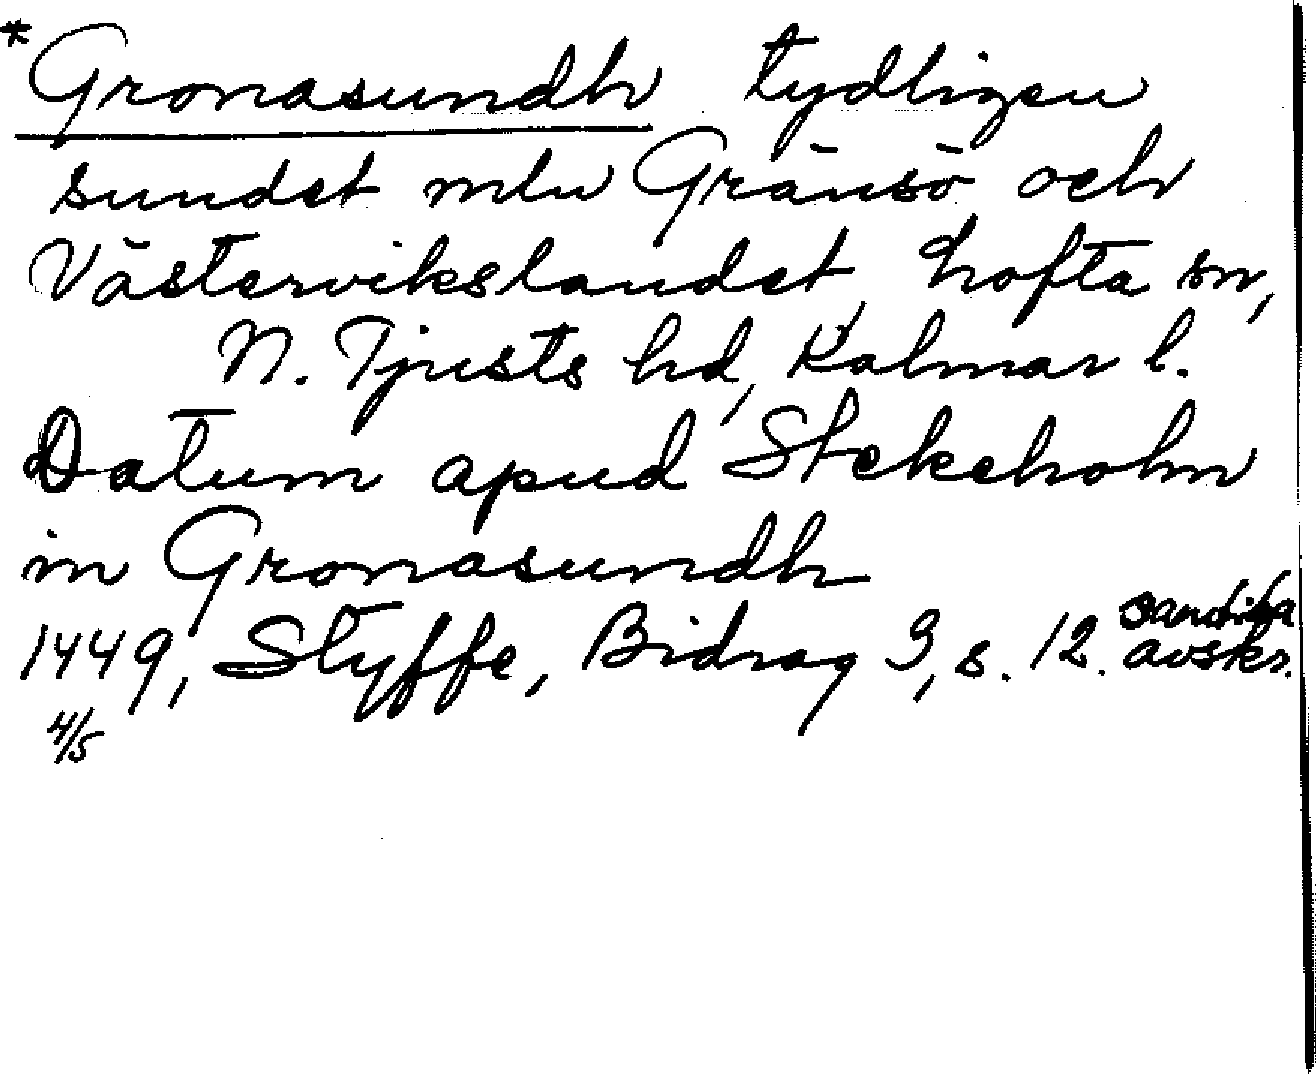 *Gronasundh tydligen
sundet mlu Gränsö och
Västervikslandet, Lofta sn,
N. Tjusts hd, Kalmar l.
Datum apud Stekeholm
in Gronasundh
1449, Styffe, Bidrag 3, s. 12. samtida avskr.
4/5